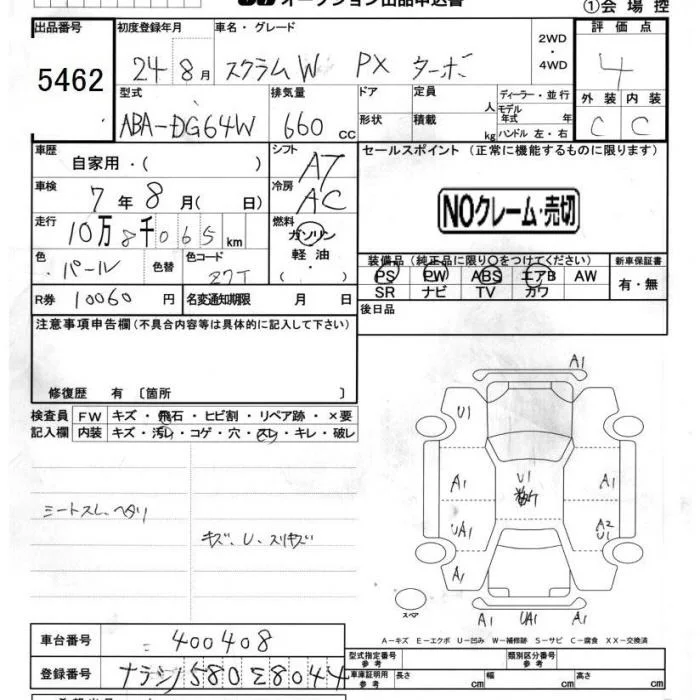 オークション出品申込書
①会場控
出品番号 初度登録年月 車名・グレード 評価点
5462 24 8月 スクラムW PX ターボ 2WD・4WD 4
型式 排気量 ドア 定員 人 ディーラー・並行 外装 内装
ABA-DG64W 660 cc 形状 積載 kg モデル年式 年 ハンドル 左・右 C C
車歴 自家用・( ) シフト AT セールスポイント(正常に機能するものに限ります)
車検 7年8月( 日) 冷房 AC NOクレーム・売切
走行 10万8千065km 燃料 ガソリン 軽油 ( )
色 パール 色替 色コード Z7T 装備品(純正品に限り○をつけてください) 新車保証書
PS PW ABS エアB AW 有・無
R券 10060円 名変通知期限 月 日 SR ナビ TV カワ
注意事項申告欄(不具合内容等は具体的に記入して下さい) 後日品
修復歴 有〔箇所 〕
検査員 FW キズ・飛石・ヒビ割・リペア跡・×要
記入欄 内装 キズ・汚レ・コゲ・穴・スレ・キレ・破レ
シートスレ、ヘタリ
キズ、U、スリキズ
A1
U1
A1 U1 A1
UA1 A2
U1
A1
スペア A1 UA1 A1
A-キズ E-エクボ U-凹み W-補修跡 S-サビ C-腐食 XX-交換済
車台番号 400408 型式指定番号 参考 類別区分番号 参考
登録番号 ナラシ580 Σ8044 車庫証明用 参考 長さ cm 幅 cm 高さ cm